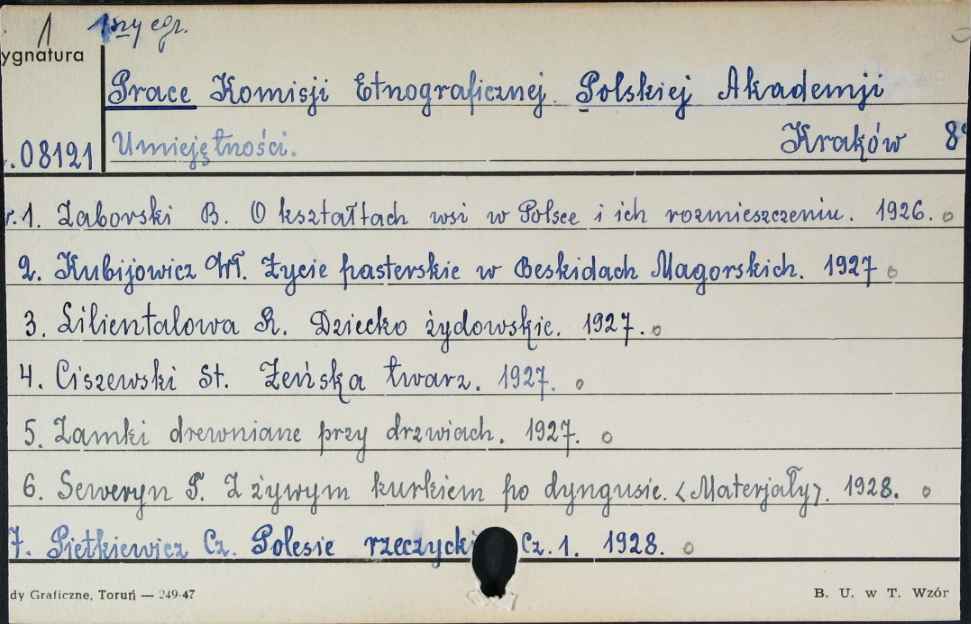 1 1szy egz.
ygnatura
Prace Komisji Etnograficznej Polskiej Akademji
.08121 Umiejętności. Kraków 8°
r.1. Zaborski B. O kształtach wsi w Polsce i ich rozmieszczeniu. 1926.
2. Kubijowicz Wł. Życie pasterskie w Beskidach Magorskich. 1927
3. Lilientalowa R. Dziecko żydowskie. 1927.
4. Ciszewski St. Żeńska twarz. 1927.
5. Zamki drewniane przy drzwiach. 1927.
6. Seweryn T. Z żywym kurkiem po dyngusie. <Materjały>. 1928.
7. Pietkiewicz Cz. Polesie rzeczycki Cz. 1. 1928.
dy Graficzne, Toruń — 249-47 B. U. w T. Wzór